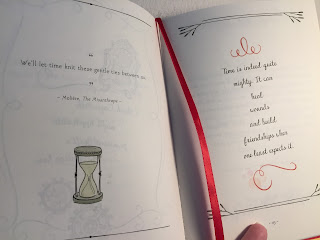 We'll let time knit these gentle ties between us.
~ Molière, The Misanthrope ~
Time is indeed quite
mighty. It can
heal
wounds
and build
friendships when
one least expects it.